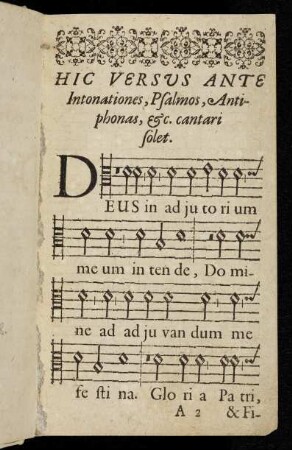 HIC VERSVS ANTE
Intonationes, Psalmos, Anti-
phonas, &c. cantari
solet.
DEUS in ad ju to ri um
me um in ten de, Do mi-
ne ad ad ju van dum me
fe sti na. Glo ri a Pa tri,
A 2 & Fi-